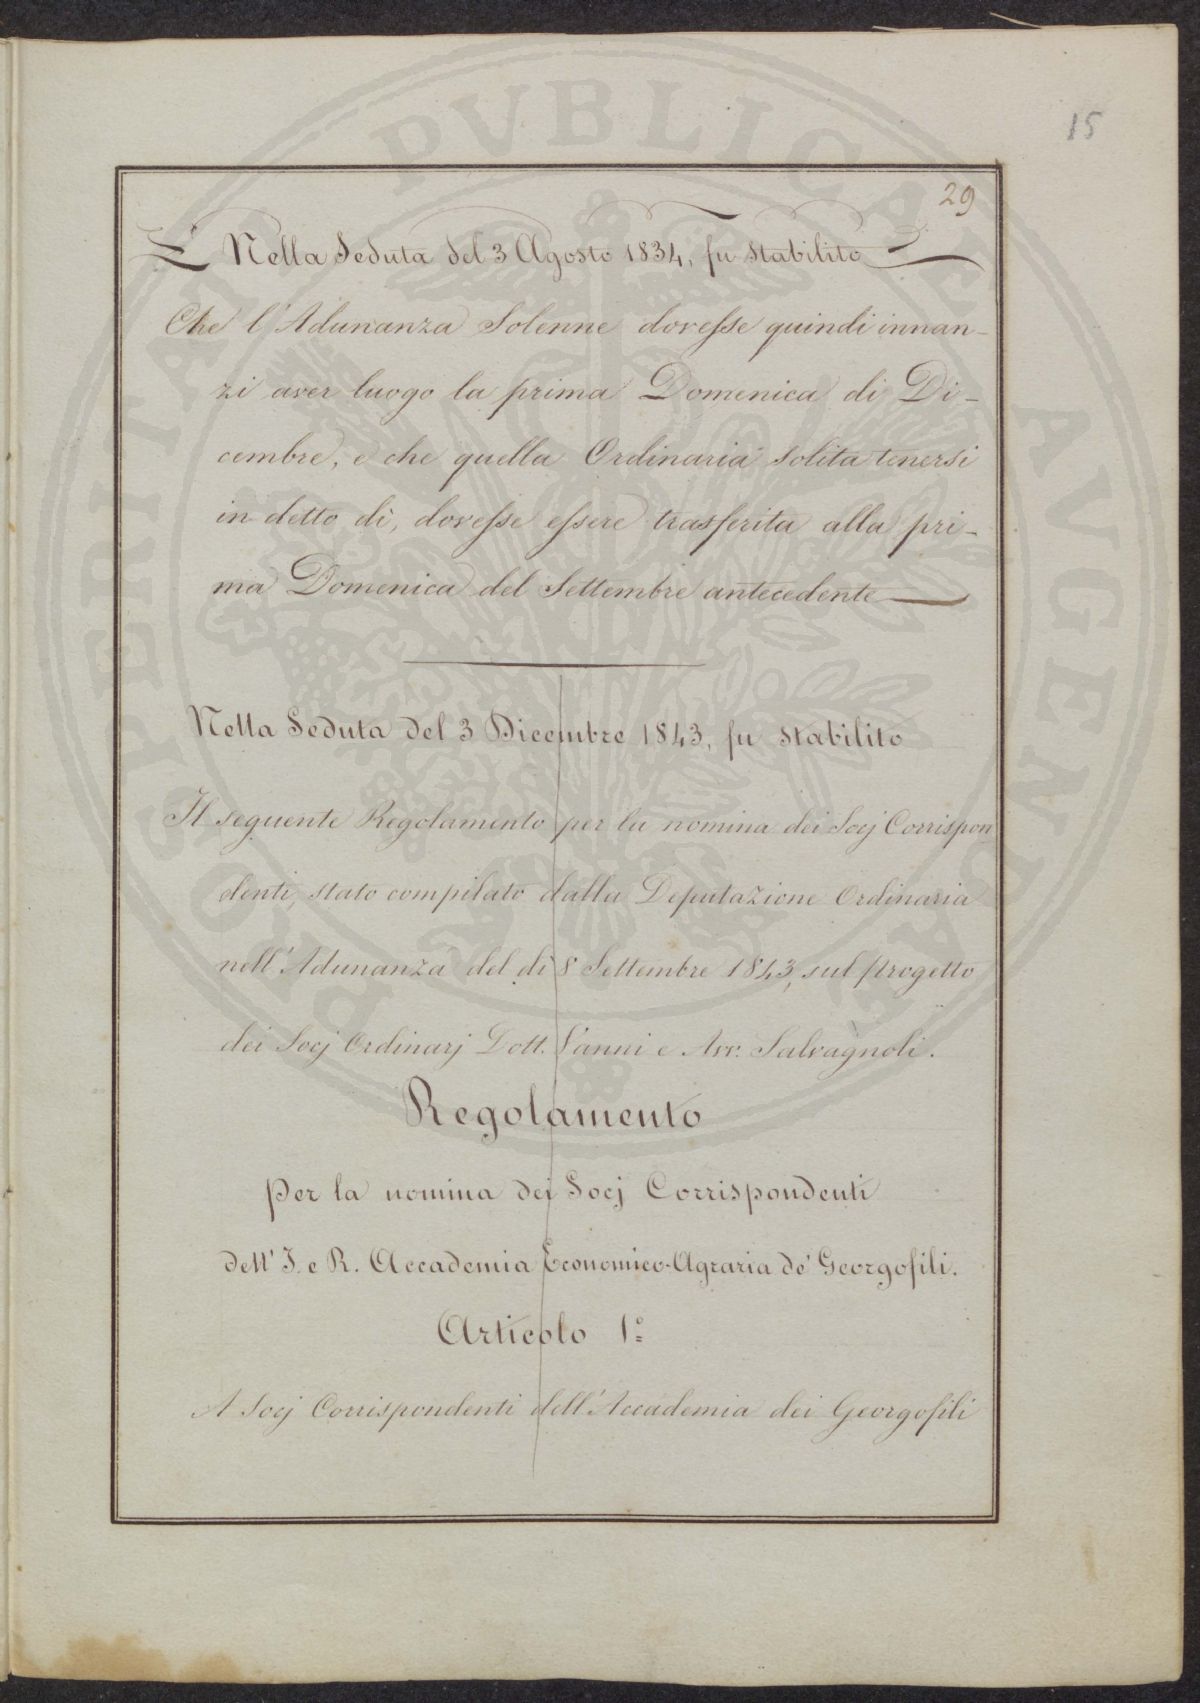 15
29
Nella Seduta del 3 Agosto 1834, fu stabilito
Che l'Adunanza Solenne dovesse quindi innan-
zi aver luogo la prima Domenica di Di-
cembre, e che quella Ordinaria solita tenersi
in detto dì, dovesse essere trasferita alla pri-
ma Domenica del Settembre antecedente
Nella Seduta del 3 Dicembre 1843, fu stabilito
Il seguente Regolamento per la nomina dei Socj Corrispon
denti, stato compilato dalla Deputazione Ordinaria
nell'Adunanza del dì 8 Settembre 1843, sul progetto
dei Socj Ordinarj Dott. Vanni e Avv. Salvagnoli.
Regolamento
per la nomina dei Socj Corrispondenti
dell'I. e R. Accademia Economico-Agraria de' Georgofili.
Articolo 1º
A Socj Corrispondenti dell'Accademia dei Georgofili
PROSPERITATI PVBLICAE AVGENDAE